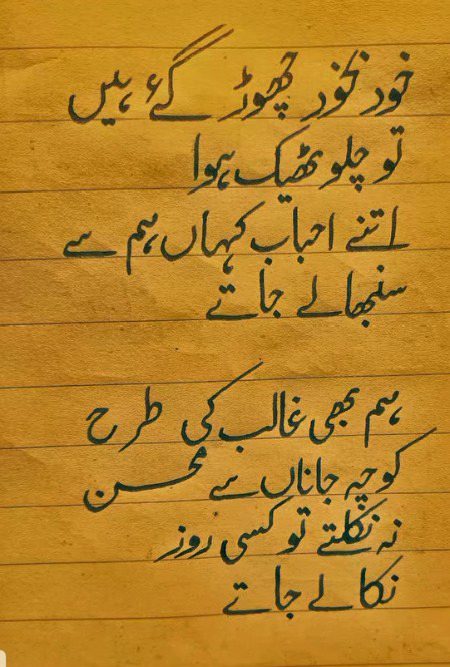 خود بخود چھوڑ گئے ہیں
تو چلو ٹھیک ہوا
اتنے احباب کہاں ہم سے
سنبھالے جاتے
ہم بھی غالب کی طرح
کوچہ جاناں سے محسن
نہ نکلتے تو کسی روز
نکالے جاتے